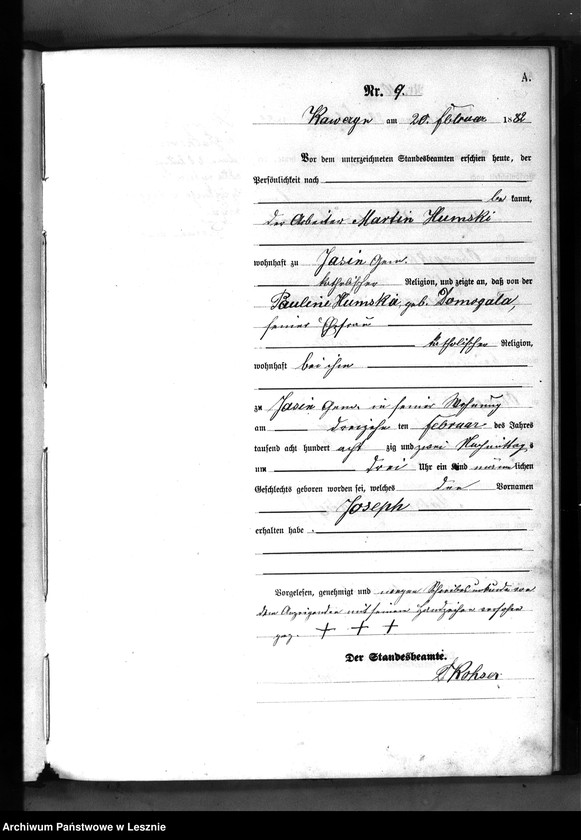 A.
Nr. 9.
Kawczyn am 20. Februar 1882
Vor dem unterzeichneten Standesbeamten erschien heute, der
Persönlichkeit nach
be kannt,
der Arbeiter Martin Humski
wohnhaft zu Jasin Gem.
katholischer Religion, und zeigte an, daß von der
Pauline Humska, geb. Domogala,
seiner Ehefrau
katholischer Religion,
wohnhaft bei ihm
zu Jasin Gem. in seiner Wohnung
am dreizehn ten Februar des Jahres
tausend acht hundert acht zig und zwei Nachmittag s
um drei Uhr ein Kind männ lichen
Geschlechts geboren worden sei, welches den Vornamen
Joseph
erhalten habe.
Vorgelesen, genehmigt und wegen Schreibensunkunde von
dem Anzeigenden mit seinem Handzeichen versehen
gez. + + +
Der Standesbeamte.
Archiwum Państwowe w Lesznie